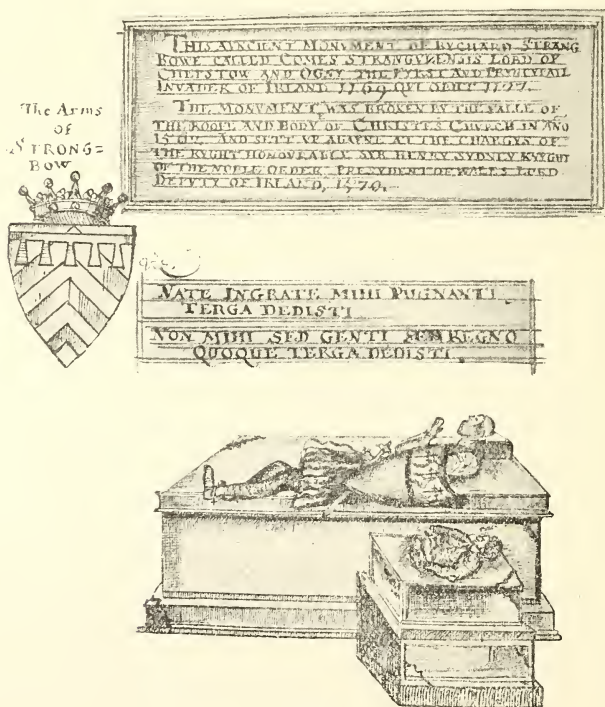 THIS AVNCIENT MONVMENT OF RYCHARD STRANG
BOWE CALLED COMES STRANGVLENSIS LORD OF
CHEPSTOW AND OGNY THE FYRST AND PRYNCYPALL
INVADER OF IRLAND 1169 QVI OBIIT 1177.
THE MONVMENT WAS BROKEN BY THE FALLE OF
THE ROOFE AND BODY OF CHRISTES CHVRCH IN ANO
AND SETT VP AGAYNE AT THE CHARGYS OF
THE RYGHT HONOVRABLE SYR HENRY SYDNEY KNYGHT
OF THE NOBLE ORDER PRESYDENT OF WALES LORD
DEPVTY OF IRLAND, 1570.
The Arms
of
STRONG=
BOW
NATE INGRATE MIHI PUGNANTI
TERGA DEDISTI
NON MIHI SED GENTI REGNO
QUOQUE TERGA DEDISTI.